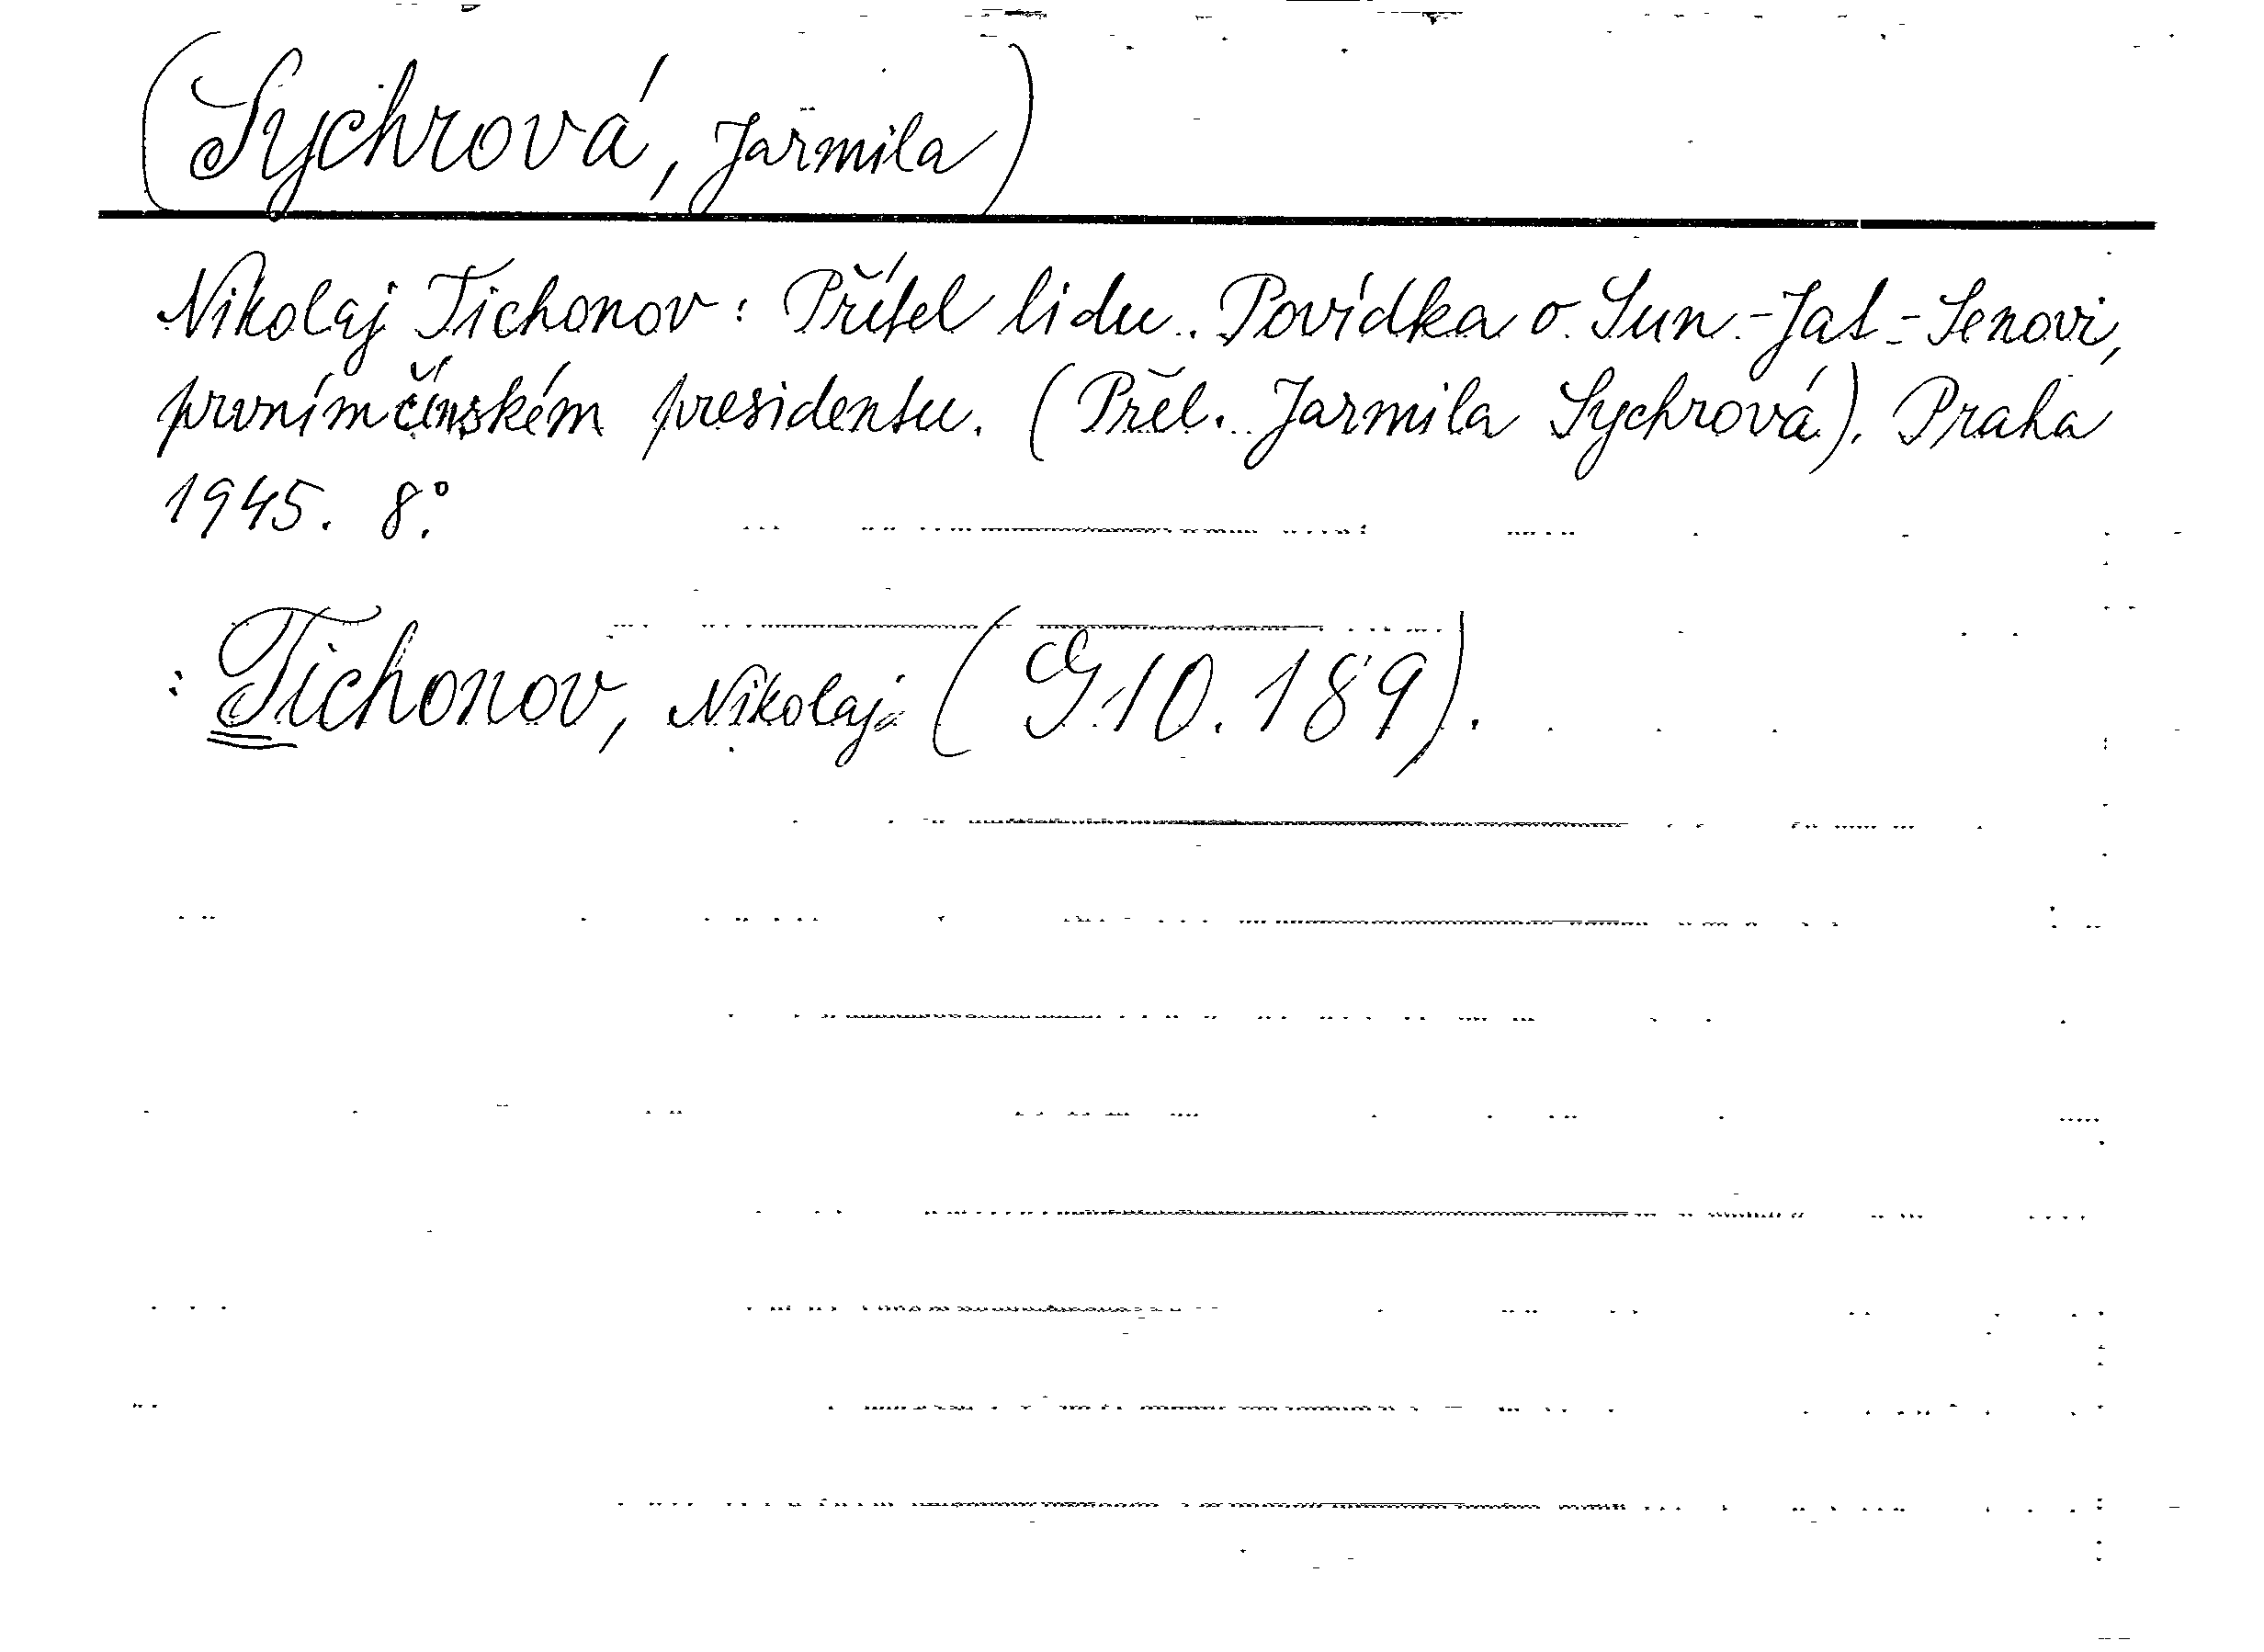 (Sychrová, Jarmila)
Nikolaj Tichonov: Přítel lidu. Povídka o Sun-Jat-Senovi,
prvním čínském presidentu. (Přel. Jarmila Sychrová). Praha
1945. 8°.
: Tichonov, Nikolaj (G 10.189).